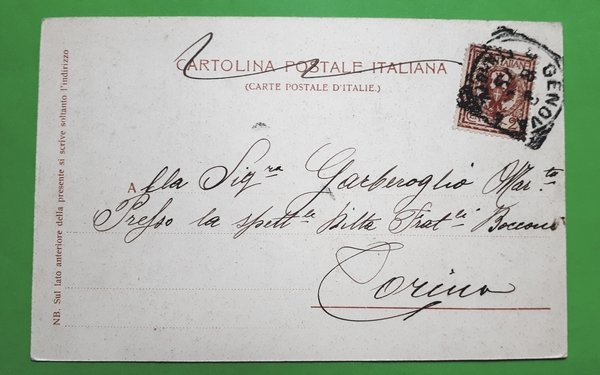 CARTOLINA POSTALE ITALIANA
(CARTE POSTALE D'ITALIE.)
GENOVA
Alla Sigra Garberoglio Marta
Presso la spettle Ditta Fratli Bocconi
Torino
NB. Sul lato anteriore della presente si scrive soltanto l'indirizzo